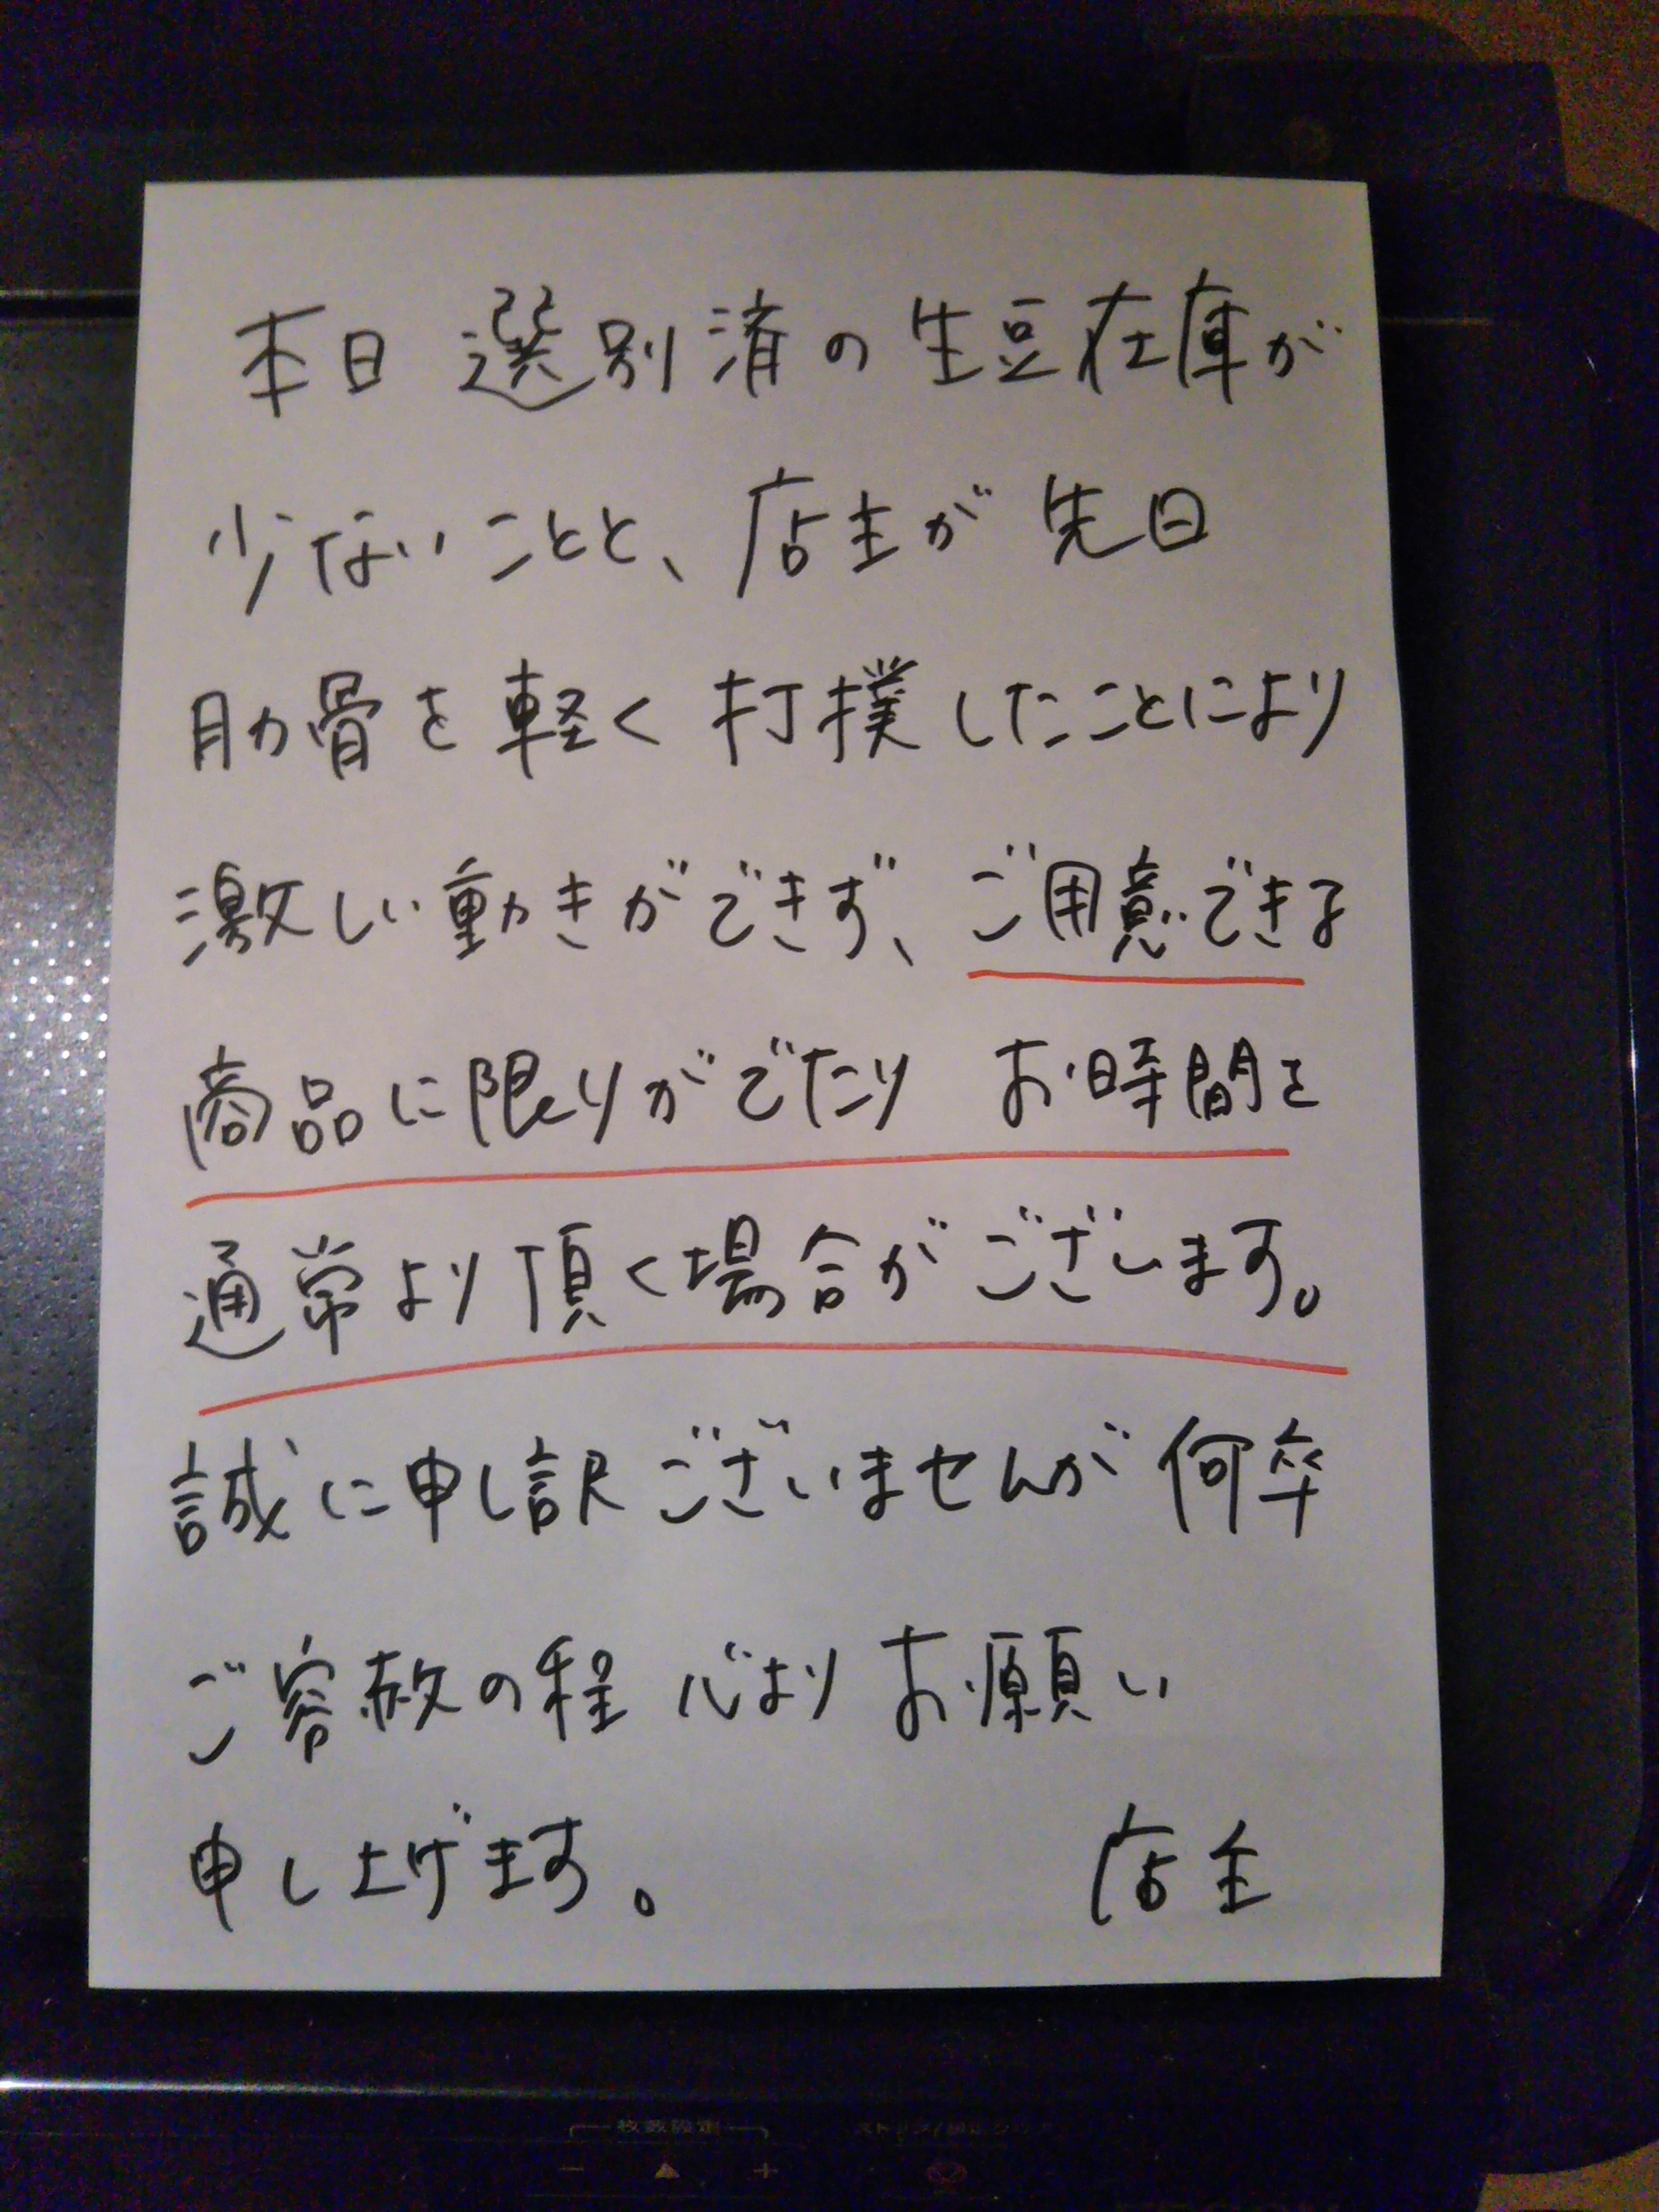 本日 選別済の生豆在庫が
少ないことと、店主が先日
肋骨を軽く打撲したことにより
激しい動きができず、ご用意できる
商品に限りがでたり お時間を
通常より頂く場合がございます。
誠に申し訳ございませんが何卒
ご容赦の程 心より お願い
申し上げます。 店主
枚数設定
− ▲ +